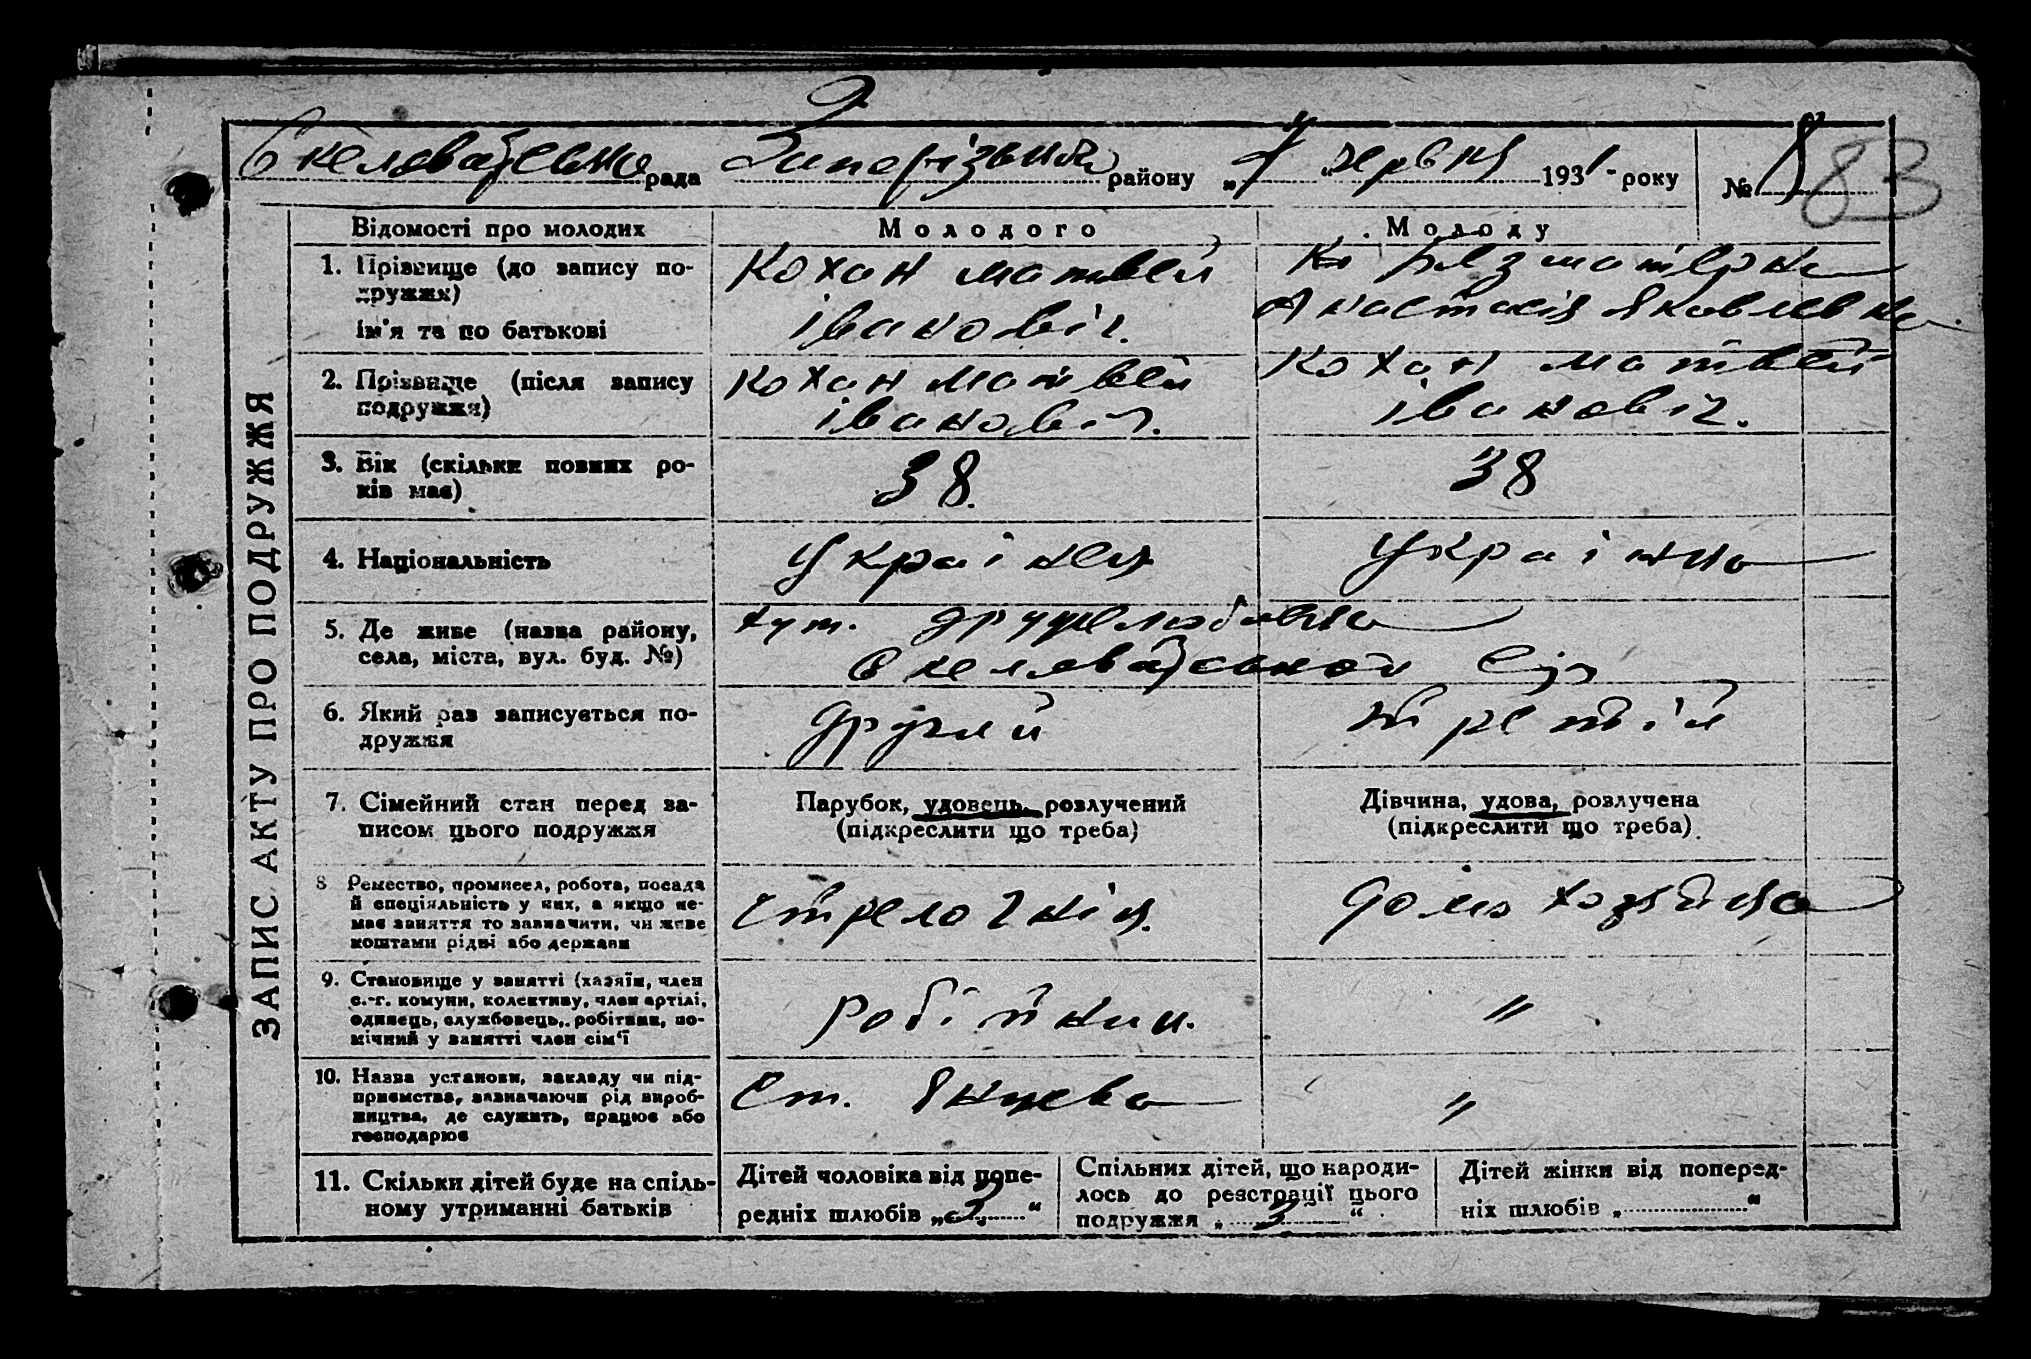 Скелеватське рада Запорізький району „7“ червня 1931 року № 8
83
ЗАПИС АКТУ ПРО ПОДРУЖЖЯ
Відомості про молодих
Молодого
Молоду
1. Прізвище (до запису по-
дружжя)
ім'я та по батькові
Кохан матвей
івановіч.
Анастасія Яковлевна
2. Прізвище (після запису
подружжя)
Кохан Матвей
івановіч.
Кохан матвей
івановіч.
3. Вік (скільки повних ро-
ків має)
38.
38
4. Національність
Українец
Українка
5. Де живе (назва району,
села, міста, вул. буд. №)
хут.
Скелеватської С/р
6. Який раз записується по-
дружжя
другий
третій
7. Сімейний стан перед за-
писом цього подружжя
Парубок, удовець, розлучений
(підкреслити що треба)
Дівчина, удова, розлучена
(підкреслити що треба)
8 Ремество, промисел, робота, посада
й спеціяльність у них, а якщо не-
має заняття то зазначити, чи живе
коштами рідні або держави
стрелочнік
домо хозяйка
9. Становище у занятті (хазяїн, член
с.-г. комуни, колективу, член артілі,
одинець, службовець, робітник, по-
мічний у занятті член сім'ї
робітник.
"
10. Назва установи, закладу чи під-
приємства, зазначаючи рід вироб-
ництва, де служить, працює або
господарює
Ст. Янцево
"
11. Скільки дітей буде на спіль-
ному утриманні батьків
Дітей чоловіка від попе-
редніх шлюбів „2“
Спільних дітей, що народи-
лось до реєстрації цього
подружжя „3“
Дітей жінки від поперед-
ніх шлюбів „.....“